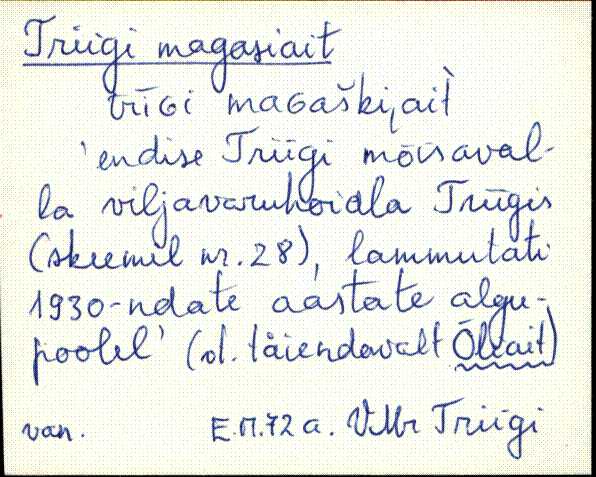 Triigi magasiait
trīGi maGaški̬ait̀
'endise Triigi mõisaval-
la viljavaruhoidla Triigis
(skeemil nr. 28), lammutati
1930-ndate aastate algu-
poolel' (vt. täiendavalt Õleait)
van. E.П.72 a. VMr Triigi